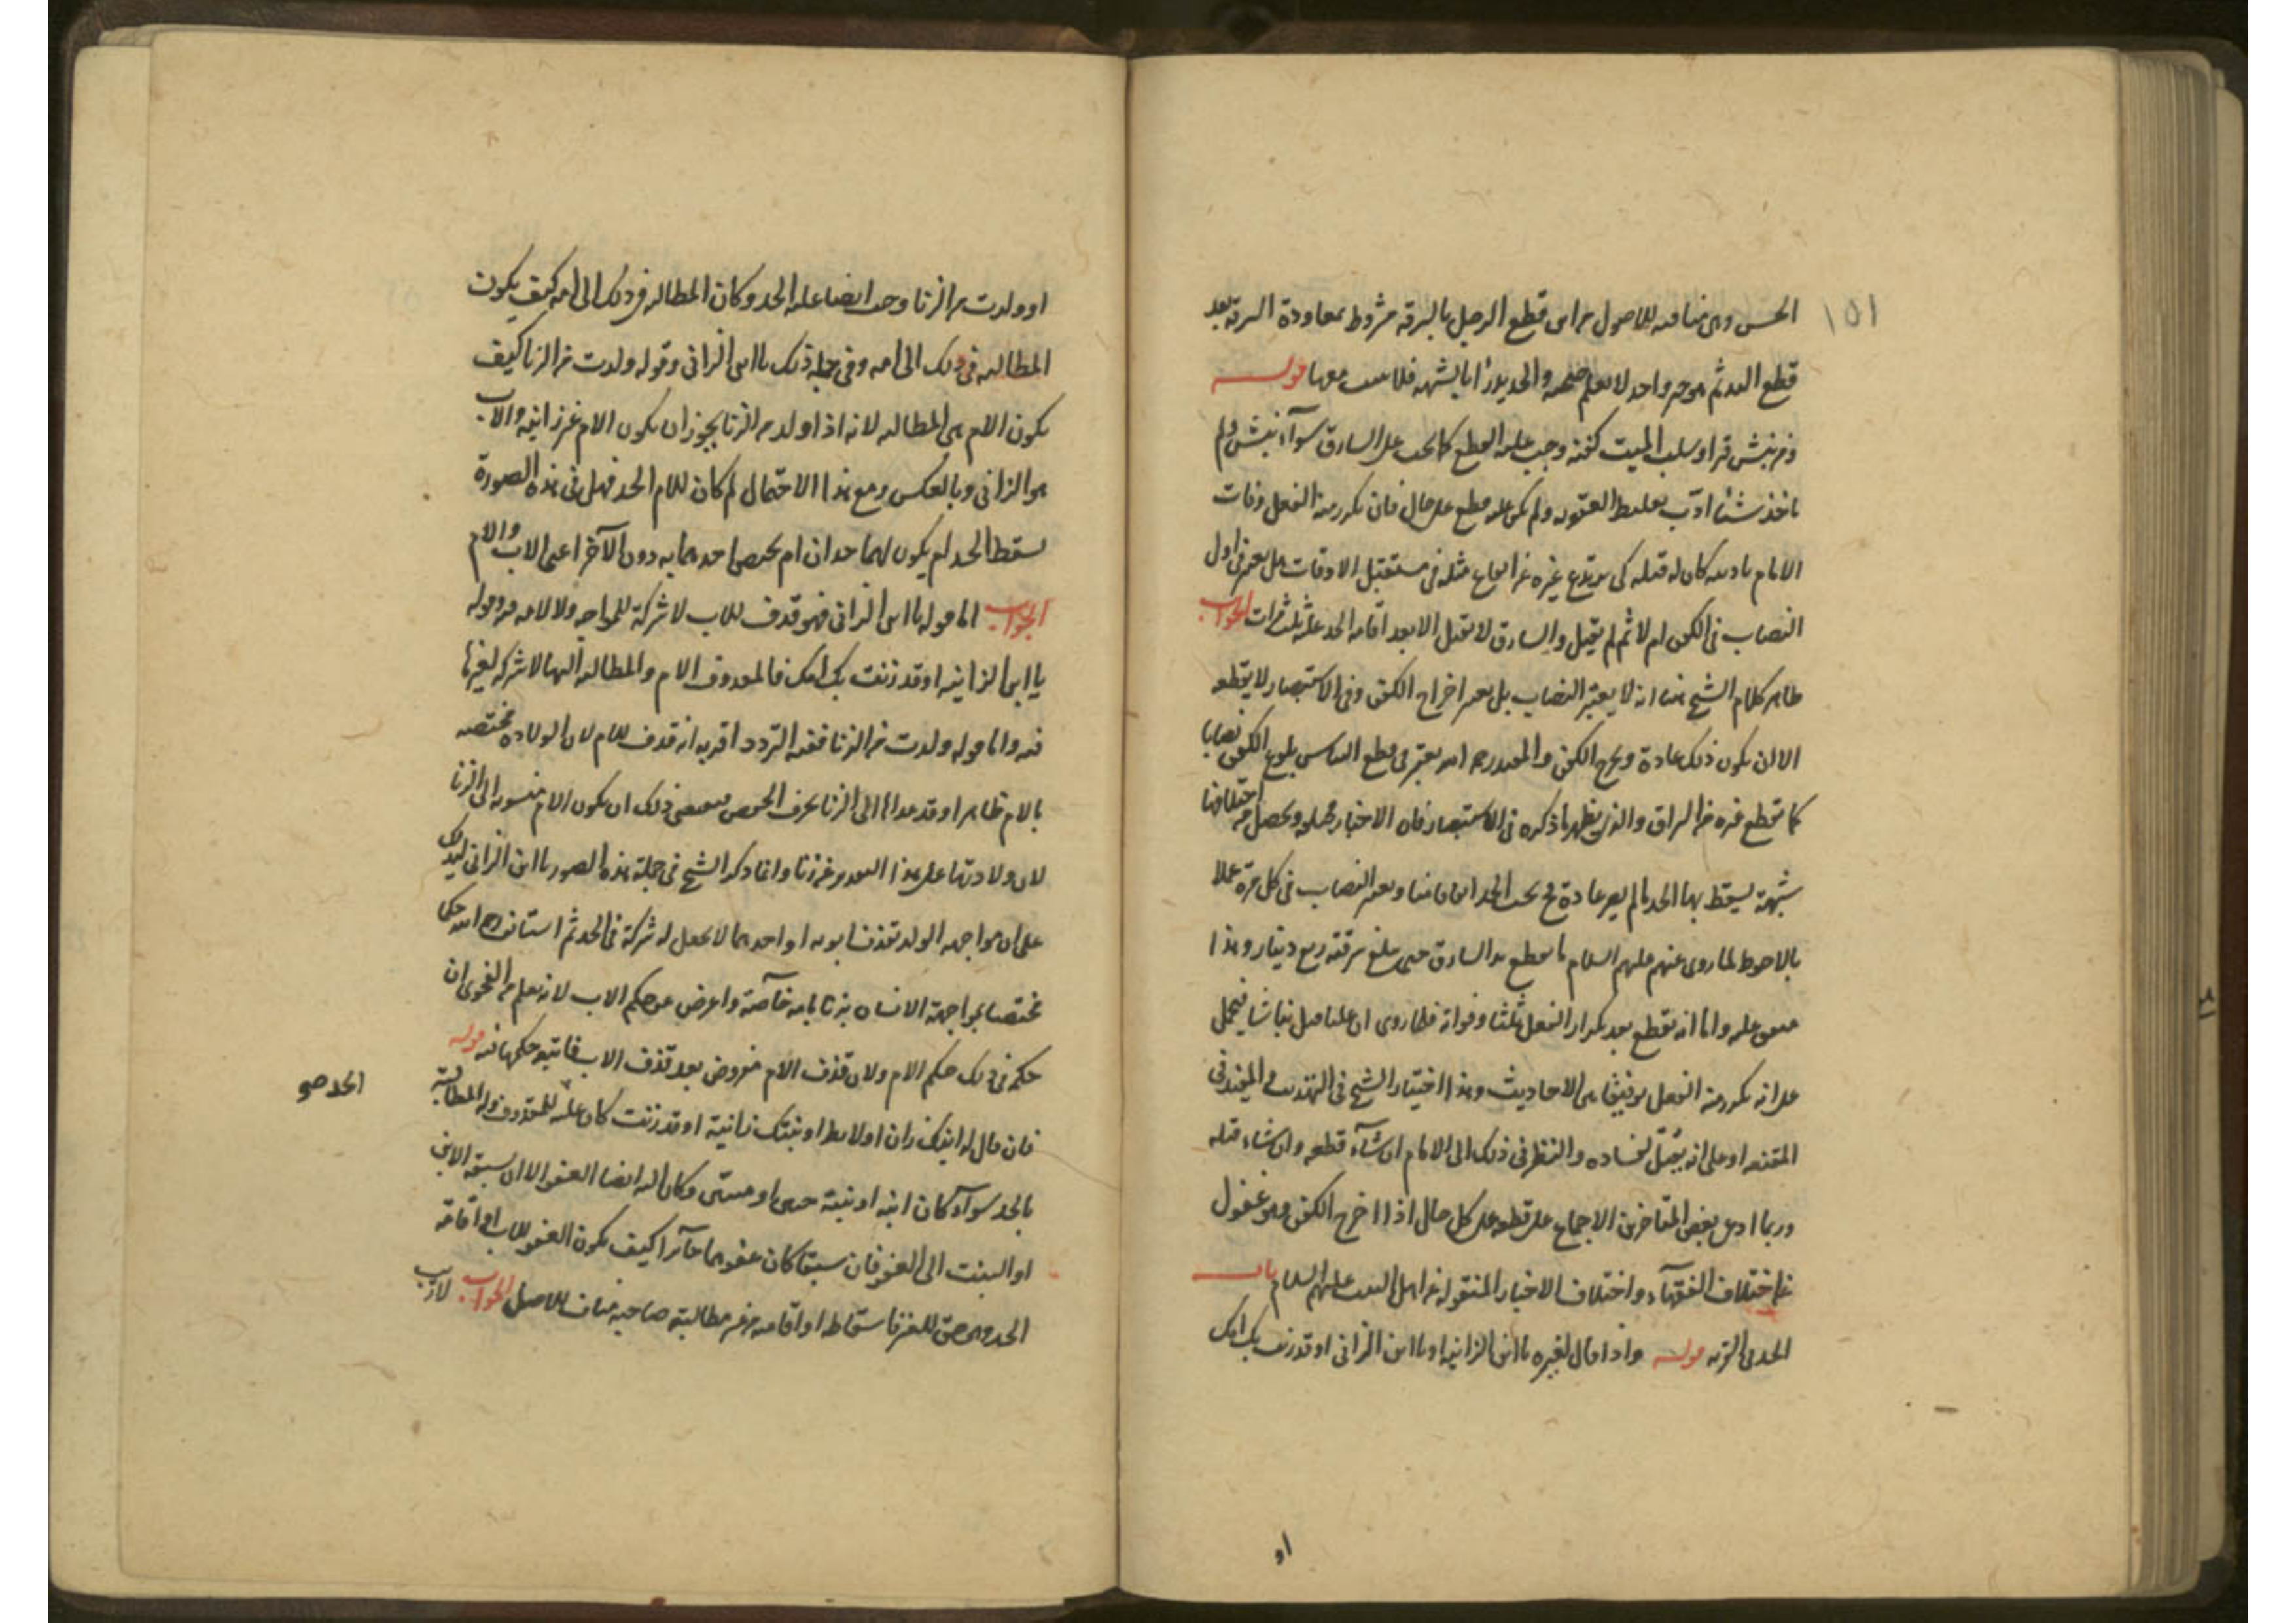 ١٥١
الحسن وهي منافيه للاصول من ان قطع الرجل بالسرقه مشروط بمعاودة السرقه بعد
قطع اليد ثم هو خبر واحد لا يعلم صحته والحد يدرأ بالشبهه فلا يثبت معها قوله
ومن نبش قبرا وسلب الميت كفنه وجب عليه القطع كما يجب على السارق سوآء نبش ولم
ياخذ شيئا ادّب بغليظ العقوبه ولم يكن عليه قطع على حال فان تكرر منه الفعل وفات
الامام تاديبه كان له قتله كي يرتدع غيره عن ايقاع مثله في مستقبل الاوقات هل يعتبر في اول
النصاب في الكفن ام لا ثم لم يقتل والسارق لا يقتل الا بعد اقامه الحد عليه ثلث مرات الجواب
ظاهر كلام الشيخ هنا انه لا يعتبر النصاب بل يعتبر اخراج الكفن وفي الاستبصار لا يقطعه
الا ان يكون ذلك عادة ويخرج الكفن والمفيد رحمه الله يعتبر في قطع النباش بلوغ الكفن نصابا
كما يقطع غيره من السراق والذي يظهر ما ذكره في الاستبصار فان الاخبار مختلفه ويحصل من اختلافها
شبهة يسقط بها الحد ما لم يصر عادة فح يجب الحد اتفاقا منا ويعتبر النصاب في كل مرة عملا
بالاحوط لما روى عنهم عليهم السلام لا يقطع يد السارق حتى تبلغ سرقته ربع دينار وهذا
متفق عليه واما انه يقطع بعد تكرار الفعل ثلثا وفواته فلما روى ان عليا قتل نباشا فيحمل
على انه تكرر منه الفعل توفيقا بين الاحاديث وهذا اختيار الشيخ في التهذيب والمفيد في
المقنعه او على انه يقتل لفساده والنظر في ذلك الى الامام ان شآء قطعه وان شاء قتله
وربما ادعى بعض المتاخرين الاجماع على قطعه على كل حال اذا اخرج الكفن وهو غفول
عن اختلاف الفقهآء واختلاف الاخبار المنقوله عن اهل البيت عليهم السلام باب
الحد في الفريه قوله واذا قال لغيره يا ابن الزانيه او يا ابن الزاني او قد زنت بك امك
او
او ولدت من الزنا وجب ايضا عليه الحد وكان المطالبه في ذلك الى امه كيف يكون
المطالبه في ذلك الى امه وفي جمله ذلك يا ابن الزاني وقوله ولدت من الزنا كيف
يكون الام هي المطالبه لانه اذا ولد من الزنا يجوز ان يكون الام غير زانيه والاب
هو الزاني وبالعكس ومع هذا الاحتمال لم كان للام الحد فهل في هذه الصورة
يسقط الحد ام يكون لهما حدان ام يختص احدهما به دون الآخر اعني الاب والام
الجواب اما قوله يا ابن الزاني فهو قذف للاب لا شركة للمواجه ولا لامه فيه وقوله
يا ابن الزانيه او قد زنت بك امك فالمقذوف الام والمطالبه اليها لا شركه لغيرها
فيه واما قوله ولدت من الزنا ففيه التردد اقربه انه قذف للام لان الولاده مختصه
بالام ظاهرا وقد عداها الى الزنا بحرف الجر ومقتضى ذلك ان يكون الام منسوبه الى الزنا
لان ولادتها على هذا التقدير عن زنا وانما ذكر الشيخ في جملة هذه الصور يا ابن الزاني ليدلك
على ان مواجهه الولد بقذف ابويه او احدهما لا يجعل له شركة في الحد ثم استانف رحمه الله حكما
مختصا بمواجهة الانسان بزنا امه خآصة واعرض عن حكم الاب لانه يعلم من الفحوى ان
حكمه في ذلك حكم الام ولان قذف الام مفروض بعد قذف الاب فاتبع حكمها فيه قوله
فان قال له ابنك زان او لايط او بنتك زانية او قد زنت كان عليه للمقذوف وله المطالبة
الحد صح
بالحد سوآء كان ابنه او بنته حيين او ميتين وكان اليه ايضا العفو الا ان يسبقه الابن
او البنت الى العفو فان سبقا كان عفوهما جآئزا كيف يكون العفو للاب او اقامة
الحد وهو حق للغير فاسقاطه او اقامته من غير مطالبة صاحبه مناف للاصل الجواب لا ريب